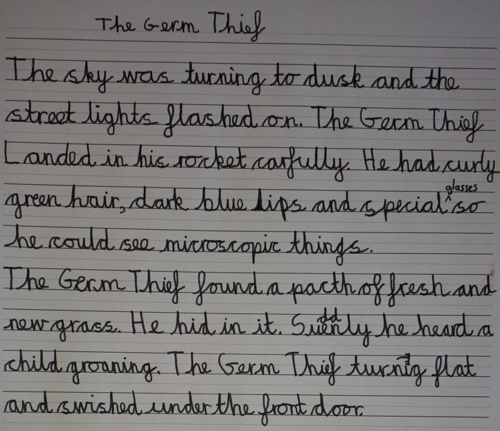 The Germ Thief
The sky was turning to dusk and the
street lights flashed on. The Germ Thief
Landed in his rocket carfully. He had curly
green hair, dark blue lips and special glasses so
he could see microscopic things.
The Germ Thief found a pacth of fresh and
new grass. He hid in it. Suddenly he heard a
child groaning. The Germ Thief turnig flat
and swished under the front door.